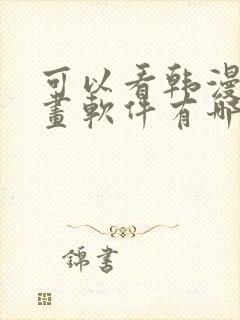 可以看韩漫
畫軟件有哪
錦書